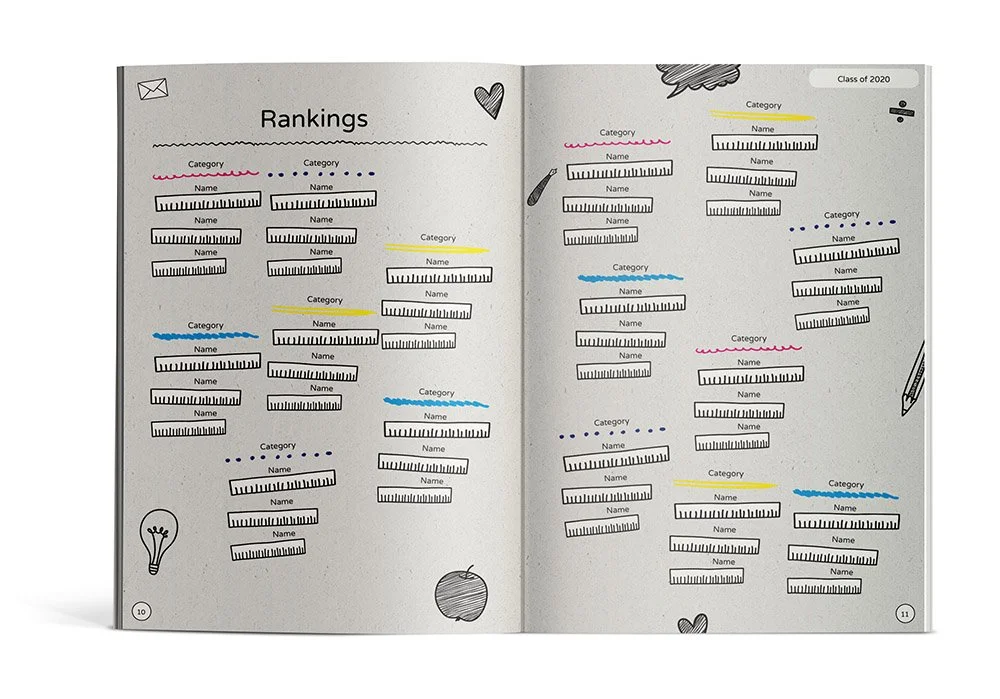 Rankings
Category
Name
Name
Name
Category
Name
Name
Name
Category
Name
Name
Name
Category
Name
Name
Name
Category
Name
Name
Name
Category
Name
Name
Name
Category
Name
Name
Name
10
Class of 2020
Category
Name
Name
Name
Category
Name
Name
Name
Category
Name
Name
Name
Category
Name
Name
Name
Category
Name
Name
Name
Category
Name
Name
Name
Category
Name
Name
Name
Category
Name
Name
Name
11